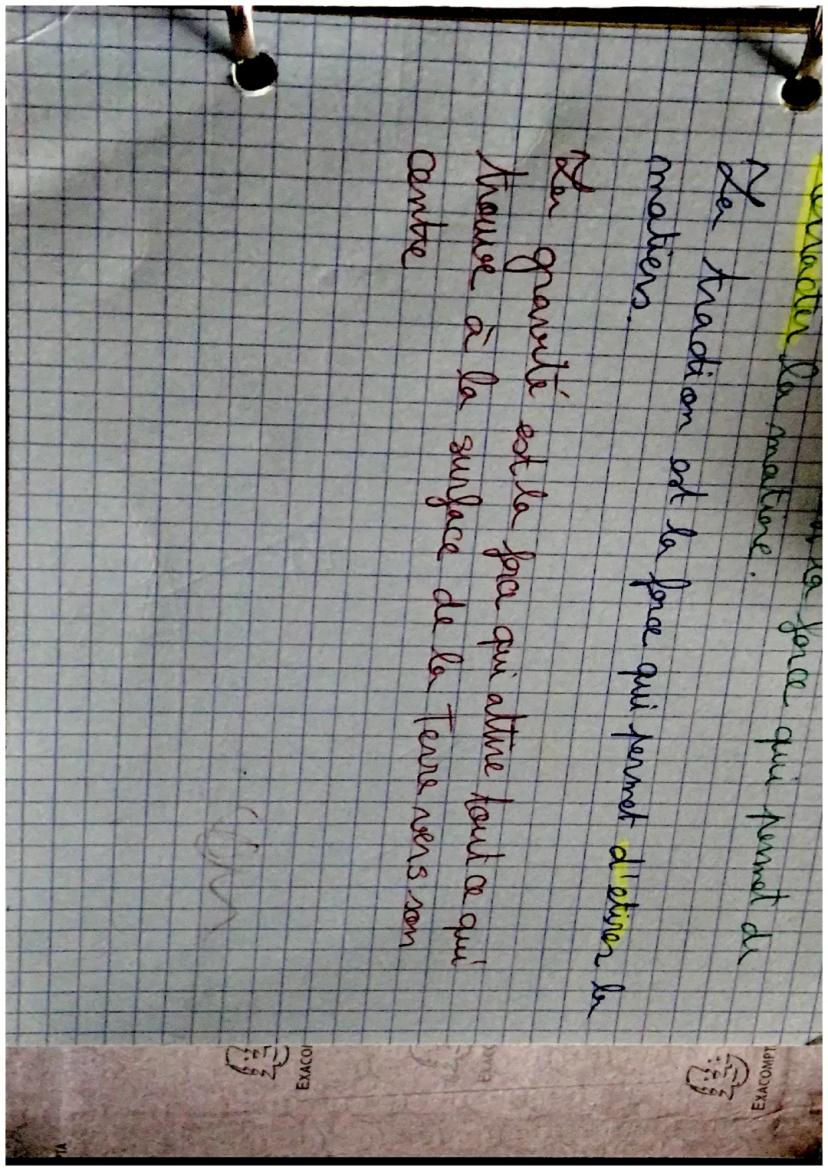 la force qui permet de
contracter la matiere.
La traction est la force qui permet d'etirer la
matiere.
La gravité est la force qui attire tout ce qui
trouve à la surface de la Terre vers son
centre
EXACOMPT
EXACO